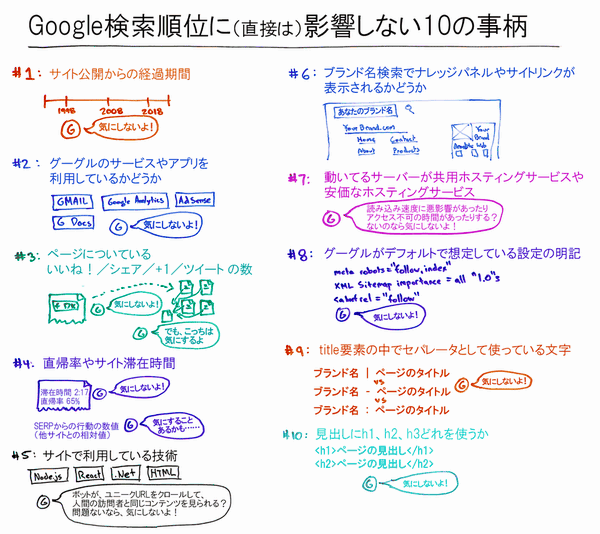 Google検索順位に(直接は)影響しない10の事柄
#1: サイト公開からの経過期間
1998 2008 2018
G 気にしないよ!
#2: グーグルのサービスやアプリを
利用しているかどうか
GMAIL Google Analytics AdSense
G Docs G 気にしないよ!
#3: ページについている
いいね!／シェア／+1／ツイート の数
f 17K
G 気にしないよ!
G でも、こっちは
気にするよ
#4: 直帰率やサイト滞在時間
滞在時間 2:17
直帰率 65%
G 気にしないよ!
SERPからの行動の数値
(他サイトとの相対値)
G 気にすること
あるかも……
#5: サイトで利用している技術
Node.js React .Net HTML
G ボットが、ユニークURLをクロールして、
人間の訪問者と同じコンテンツを見られる?
問題ないなら、気にしないよ!
#6: ブランド名検索でナレッジパネルやサイトリンクが
表示されるかどうか
あなたのブランド名
YourBrand.com
Home Contact
About Products
Your
Brand
#7: 動いてるサーバーが共用ホスティングサービスや
安価なホスティングサービス
G 読み込み速度に悪影響があったり
アクセス不可の時間があったりする?
ないのなら気にしないよ!
#8: グーグルがデフォルトで想定している設定の明記
meta robots="follow,index"
XML Sitemap importance = all "1.0"s
<a href rel = "follow"
G 気にしないよ!
#9: title要素の中でセパレータとして使っている文字
ブランド名 | ページのタイトル
vs
ブランド名 - ページのタイトル
vs
ブランド名 : ページのタイトル
G 気にしないよ!
#10: 見出しにh1、h2、h3どれを使うか
<h1>ページの見出し</h1>
<h2>ページの見出し</h2>
G 気にしないよ!